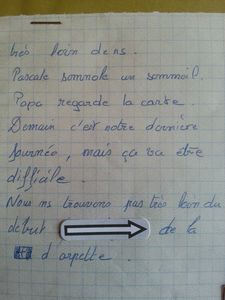 très loin dens.
Pascale somnole un sommeil.
Papa regarde la carte.
Demain c'est notre dernière
journée, mais ça va être
difficile.
Nous ns trouvons pas très loin du
début de la
d'arpette.